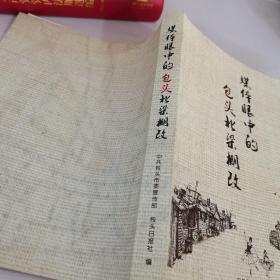 媒体眼中的
包头北梁棚改
媒体眼中的包头北梁棚改
中共包头市委宣传部
包头日报社 编